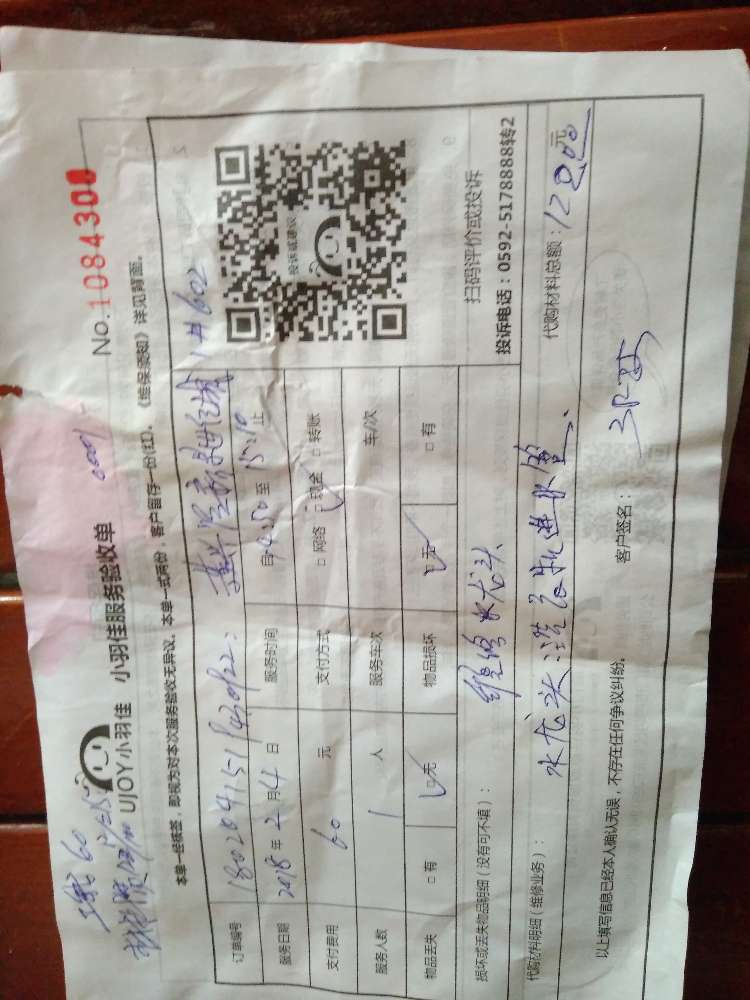 No.1084300
工费60
UJOY小羽佳 小羽佳服务验收单
本单一经核签，即视为对本次服务验收无异议。本单一式两份，客户留存一份(红)，《维保须知》详见背面。
订单编号 1#602
服务日期 2018年2月4日 服务时间 自14:50至15:10止
支付费用 60元 支付方式 □网络 □现金 □转账
服务人数 1人 服务车次 车/次
物品丢失 □有 □无 物品损坏 □无 □有
投诉或建议
扫码评价或投诉
投诉电话：0592-5178888转2
损坏或丢失物品明细（没有可不填）： 水龙头
代购材料明细（维修业务）： 水龙头 洗衣机进水管 代购材料总额： 元
以上填写信息已经本人确认无误，不存在任何争议纠纷。 客户签名：